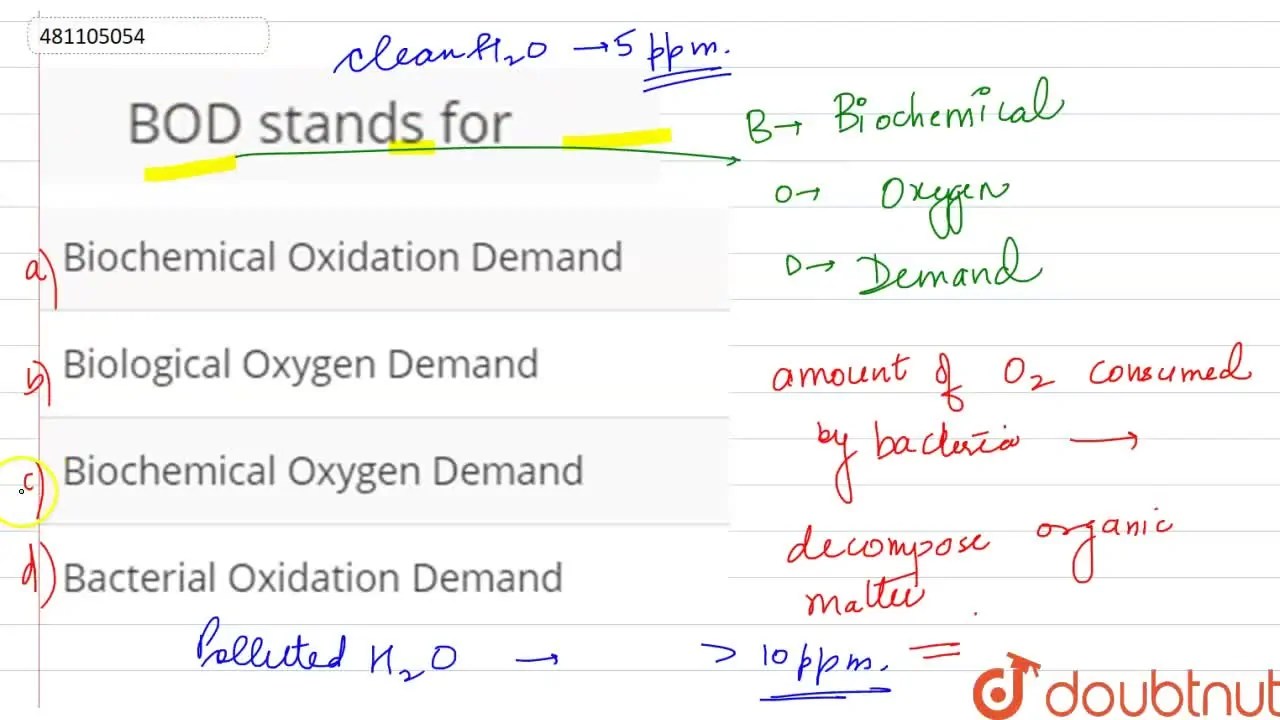 481105054
clean H₂O → 5 ppm.
BOD stands for
B → Biochemical
O → Oxygen
D → Demand
a) Biochemical Oxidation Demand
b) Biological Oxygen Demand
c) Biochemical Oxygen Demand
d) Bacterial Oxidation Demand
amount of O₂ consumed
by bacteria →
decompose organic
matter
Polluted H₂O → > 10 ppm.
doubtnut